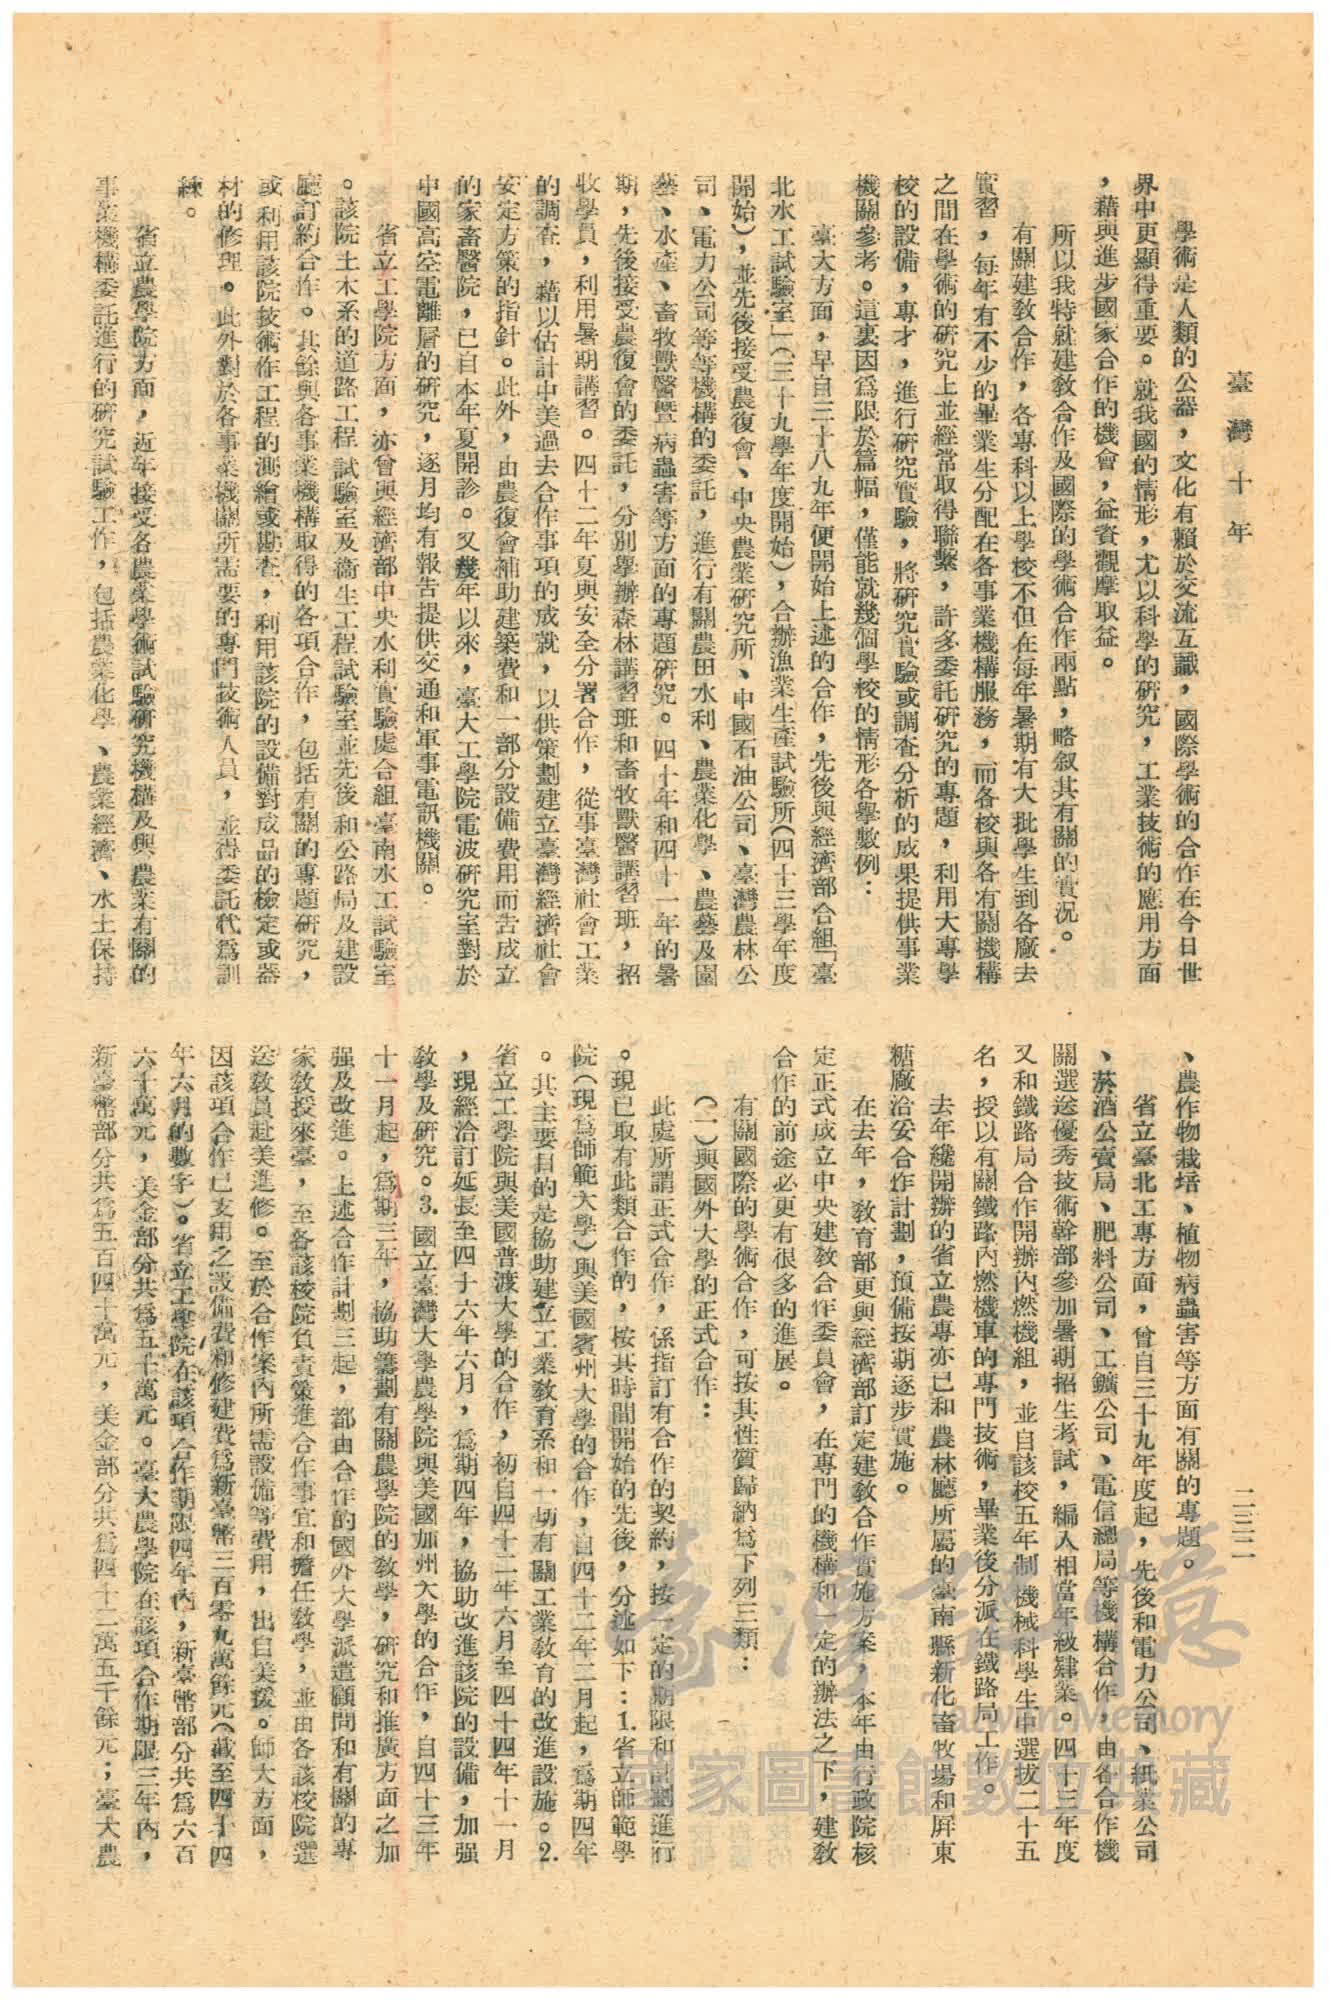 臺灣十年
二三二
學術是人類的公器，文化有賴於交流互識，國際學術的合作在今日世
界中更顯得重要。就我國的情形，尤以科學的研究，工業技術的應用方面
，藉與進步國家合作的機會，益資觀摩取益。
所以我特就建敎合作及國際的學術合作兩點，略叙其有關的實況。
有關建敎合作，各專科以上學校不但在每年暑期有大批學生到各廠去
實習，每年有不少的畢業生分配在各事業機構服務，而各校與各有關機構
之間在學術的研究上並經常取得聯繫，許多委託研究的專題，利用大專學
校的設備，專才，進行研究實驗，將研究實驗或調查分析的成果提供事業
機關參考。這裏因爲限於篇幅，僅能就幾個學校的情形各舉數例：
臺大方面，早自三十八九年便開始上述的合作，先後與經濟部合組「臺
北水工試驗室」（三十九學年度開始），合辦漁業生產試驗所（四十三學年度
開始），並先後接受農復會、中央農業研究所、中國石油公司、臺灣農林公
司、電力公司等等機構的委託，進行有關農田水利、農業化學、農藝及園
藝、水產、畜牧獸醫暨病蟲害等方面的專題研究。四十年和四十一年的暑
期，先後接受農復會的委託，分別舉辦森林講習班和畜牧獸醫講習班，招
收學員，利用暑期講習。四十二年夏與安全分署合作，從事臺灣社會工業
的調查，藉以估計中美過去合作事項的成就，以供策劃建立臺灣經濟社會
安定方策的指針。此外，由農復會補助建築費和一部分設備費用而告成立
的家畜醫院，已自本年夏開診。又幾年以來，臺大工學院電波研究室對於
中國高空電離層的研究，逐月均有報告提供交通和軍事電訊機關。
省立工學院方面，亦會與經濟部中央水利實驗處合組臺南水工試驗室
。該院土木系的道路工程試驗室及衛生工程試驗室並先後和公路局及建設
廳訂約合作。其餘與各事業機構取得的各項合作，包括有關的專題研究，
或利用該院技術作工程的測繪或勘查，利用該院的設備對成品的檢定或器
材的修理。此外對於各事業機關所需要的專門技術人員，並得委託代爲訓
練。
省立農學院方面，近年接受各農業學術試驗研究機構及與農業有關的
事業機構委託進行的研究試驗工作，包括農業化學、農業經濟、水土保持
、農作物栽培、植物病蟲害等方面有關的專題。
省立臺北工專方面，曾自三十九年度起，先後和電力公司、紙業公司
、菸酒公賣局、肥料公司、工鑛公司、電信總局等機構合作，由各合作機
關選送優秀技術幹部參加暑期招生考試，編入相當年級肄業。四十三年度
又和鐵路局合作開辦內燃機組，並自該校五年制機械科學生中選拔二十五
名，授以有關鐵路內燃機車的專門技術，畢業後分派在鐵路局工作。
去年纔開辦的省立農專亦已和農林廳所屬的臺南縣新化畜牧場和屏東
糖廠洽妥合作計劃，預備按期逐步實施。
在去年，敎育部更與經濟部訂定建敎合作實施方案，本年由行政院核
定正式成立中央建敎合作委員會，在專門的機構和一定的辦法之下，建敎
合作的前途必更有很多的進展。
有關國際的學術合作，可按其性質歸納爲下列三類：
（一）與國外大學的正式合作：
此處所謂正式合作，係指訂有合作的契約，按一定的期限和計劃進行
。現已取有此類合作的，按其時間開始的先後，分述如下：1.省立師範學
院（現爲師範大學）與美國賓州大學的合作，自四十二年二月起，爲期四年
。其主要目的是協助建立工業敎育系和一切有關工業敎育的改進設施。2.
省立工學院與美國普渡大學的合作，初自四十二年六月至四十四年十一月
，現經洽訂延長至四十六年六月，爲期四年，協助改進該院的設備，加强
敎學及研究。3.國立臺灣大學農學院與美國加州大學的合作，自四十三年
十一月起，爲期三年，協助籌劃有關農學院的敎學，研究和推廣方面之加
强及改進。上述合作計劃三起，都由合作的國外大學派遣顧問和有關的專
家敎授來臺，至各該校院負責策進合作事宜和擔任敎學，並由各該校院選
送敎員赴美進修。至於合作案內所需設備等費用，出自美援。師大方面，
因該項合作已支用之設備費和修建費爲新臺幣三百零九萬餘元（截至四十四
年六月的數字）。省立工學院在該項合作期限四年內，新臺幣部分共爲六百
六十萬元，美金部分共爲五十萬元。臺大農學院在該項合作期限三年內，
新臺幣部分共爲五百四十萬元，美金部分共爲四十二萬五千餘元；臺大農
臺灣記憶
Taiwan Memory
國家圖書館數位典藏